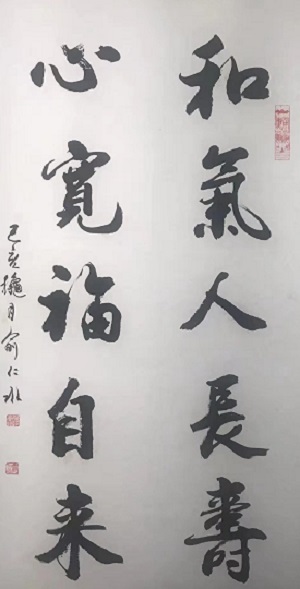 和氣人長壽
心寬福自来
己亥穐月俞仁水